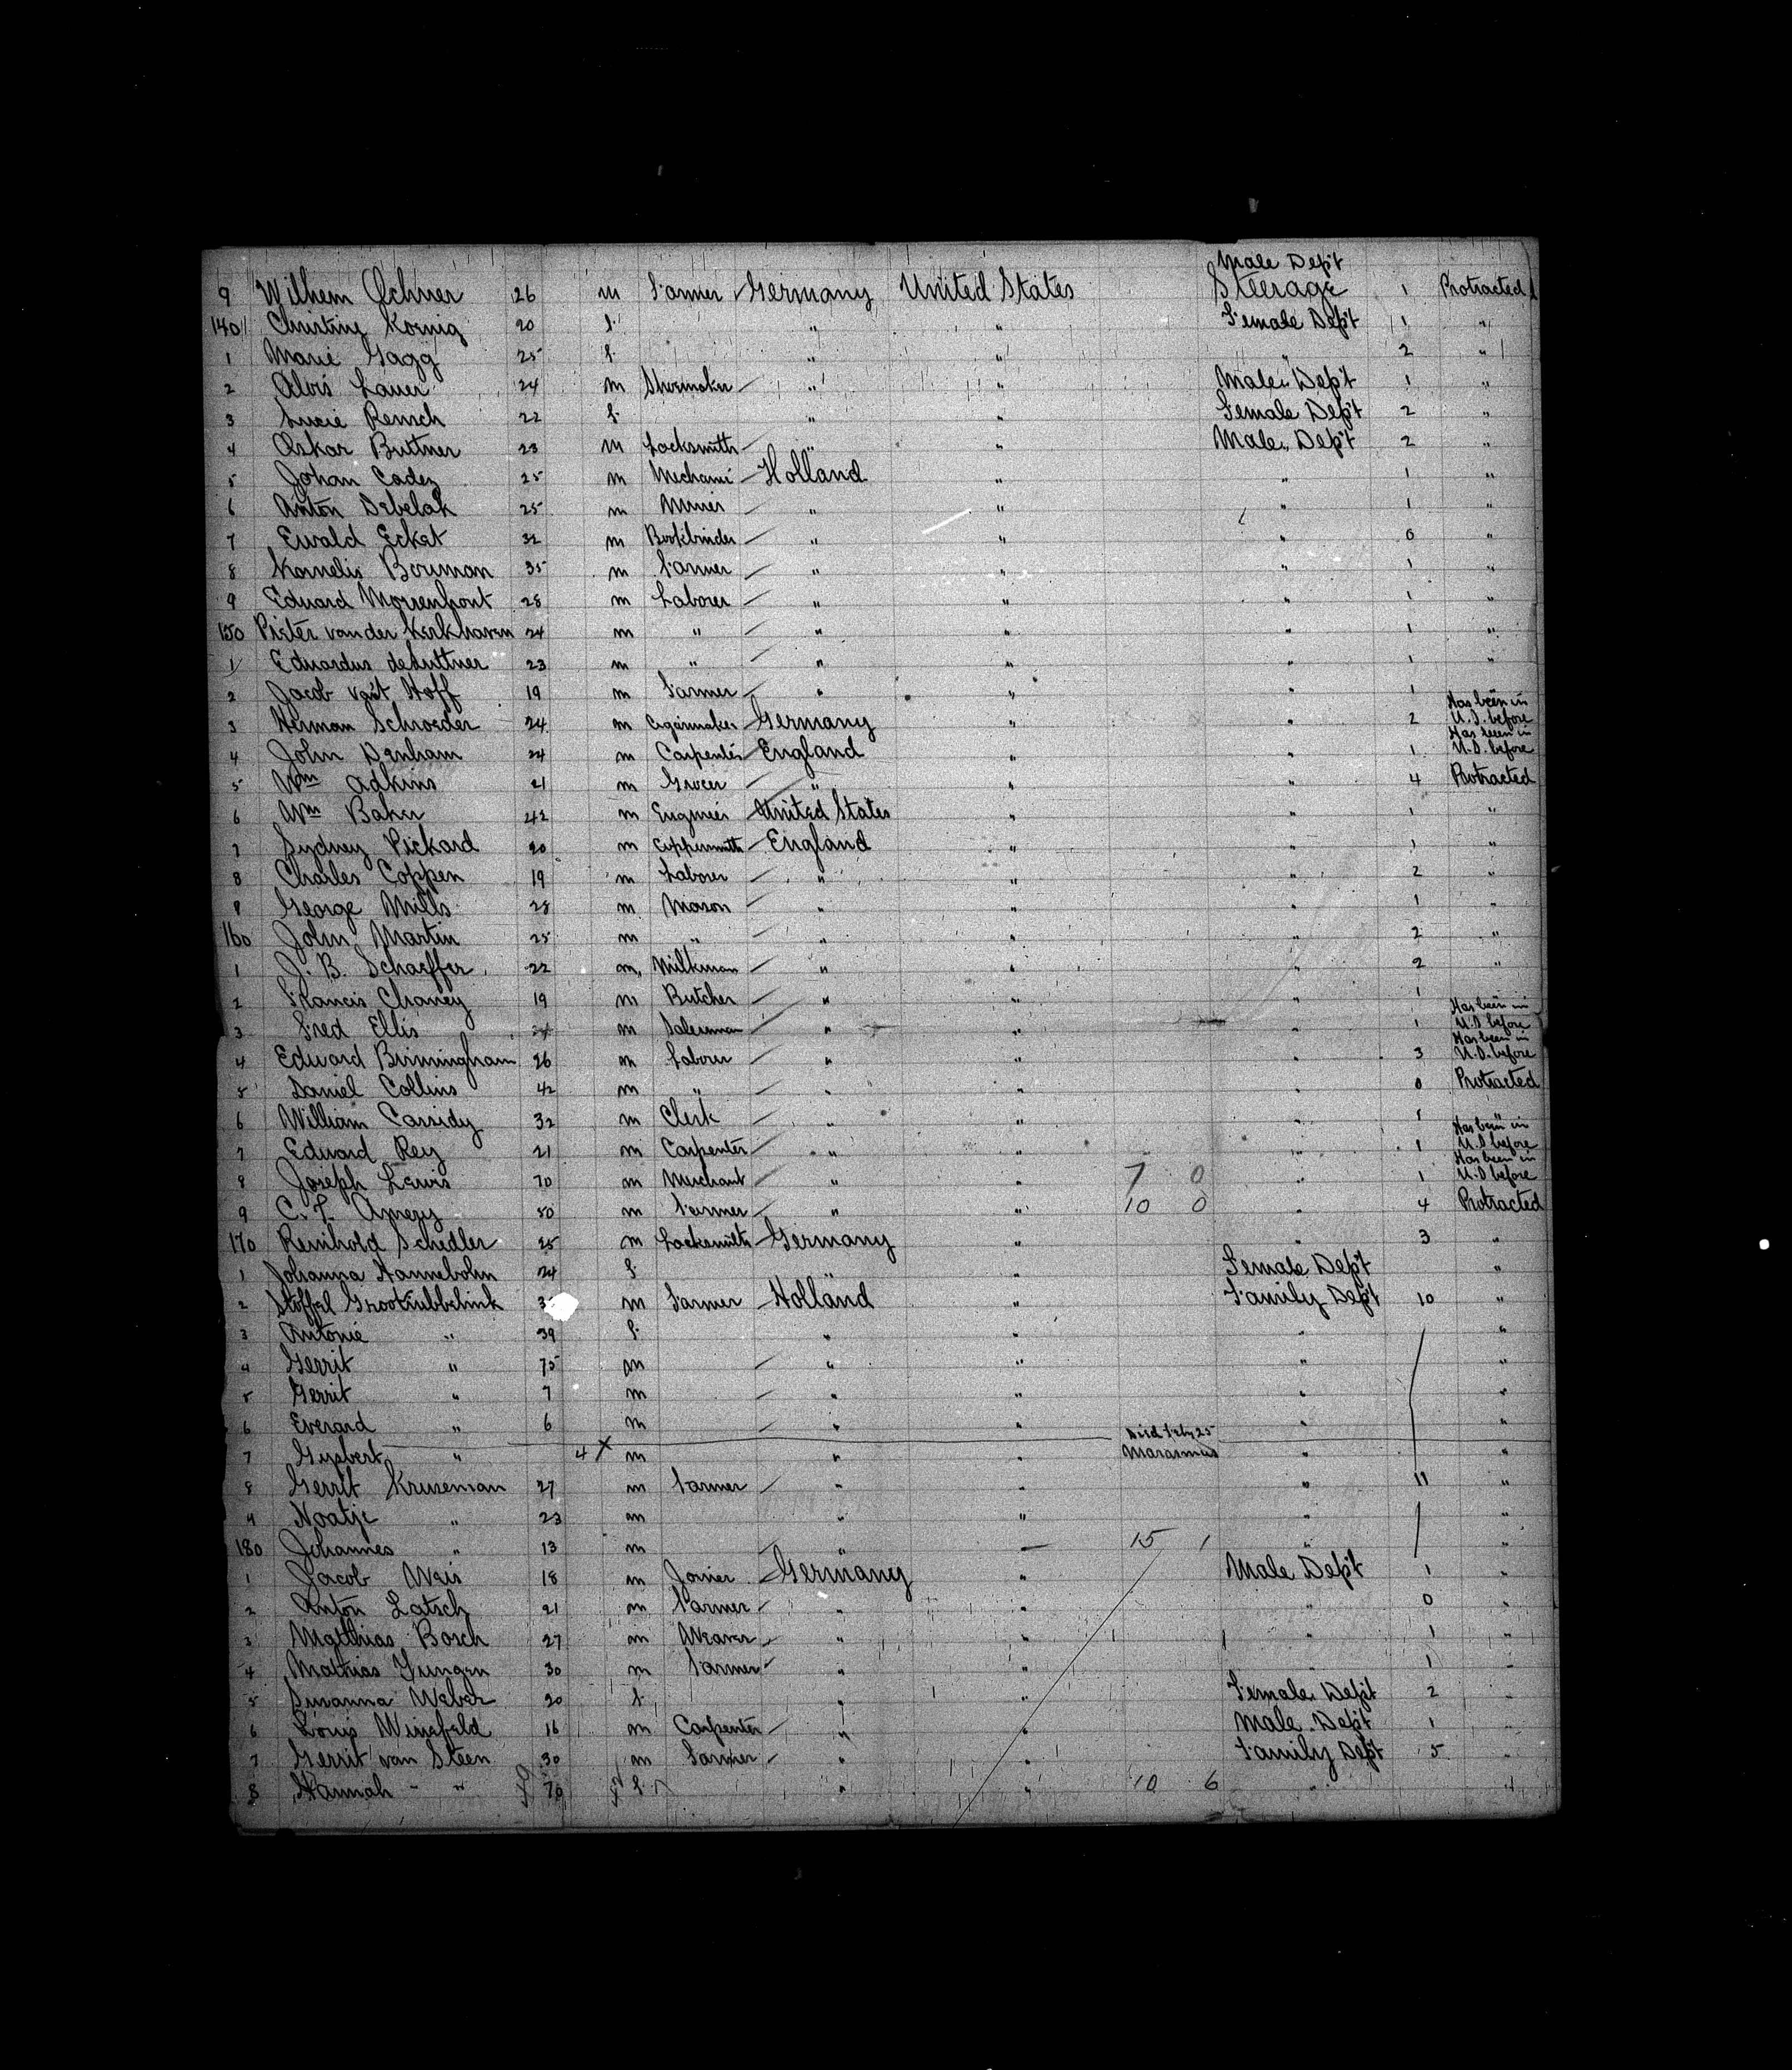 Male Dep't
9 Wilhem Ochner 26 m Farmer Germany United States Steerage 1 Protracted
140 Christine Koenig 20 f. " " Female Dep't 1 "
1 Marie Gagg 25 f. " " " 2 "
2 Alois Lauer 24 m Shoemaker " " Male Dep't 1 "
3 Lucie Rensch 22 f. " " Female Dep't 2 "
4 Oskar Buttner 23 m Locksmith " " Male Dep't 2 "
5 Johan Cadez 25 m Mechanic Holland " " 1 "
6 Anton Debelak 25 m Miner " " " 1 "
7 Ewald Eckat 32 m Bookbinder " " " 0 "
8 Kornelis Bouman 35 m Farmer " " " 1 "
9 Eduard Morrenhout 28 m Laborer " " " 1 "
150 Pieter van der Kerkhaven 24 m " " " " 1 "
1 Eduardus de 23 m " " " " 1 "
2 Jacob van't Hoff 19 m Farmer " " " 1
Has been in
3 Herman Schroeder 24 m Cigarmaker Germany " " 2 U.S. before
Has been in
4 John Denham 24 m Carpenter England " " 1 U.S. before
5 Wm Adkins 21 m Grocer " " " 4 Protracted
6 Wm Baker 42 m Engineer United States " " 1 "
7 Sydney Pickard 20 m Coppersmith England " " 1 "
8 Charles Coppen 19 m Laborer " " " 2 "
9 George Mills 28 m Mason " " " 1 "
160 John Martin 25 m " " " " 2 "
1 J. B. Schaeffer 22 m Milkman " " " 2 "
2 Francis Chaney 19 m Butcher " " 1
Has been in
3 Fred Ellis m Salesman " " 1 U.S before
Has been in
4 Edward Birmingham 26 m Laborer " " " 3 U.S. before
5 Daniel Collins 42 m " " " " 0 Protracted
6 William Cassidy 32 m Clerk " " " 1 "
Has been in
7 Edward Rey 21 m Carpenter " " " 1 U.S before
Has been in
8 Joseph Lewis 70 m Merchant " " 7 0 " 1 U.S before
9 C. F. Amery 50 m Farmer " " 10 0 " 4 Protracted
170 Reinhold Schedler 25 m Locksmith Germany " " 3 "
1 Johanna Hannebohn 24 f. " " Female Dep't "
2 Stoffel 3 m Farmer Holland " Family Dep't 10 "
3 Antonie " 39 f. " " " "
4 Gerrit " 75 m " " " "
5 Gerrit " 7 m " " " "
6 Everard " 6 m " " Died Feby 25 " "
7 Gysbert " 4 X m " " Marasmus " "
8 Gerrit Kruseman 27 m Farmer " " " 11 "
9 Noatje " 23 m " " " "
180 Johannes " 13 m " — 15 1 " "
1 Jacob Weis 18 m Joiner Germany " Male Dep't 1 "
2 Anton Latsch 21 m Farmer " " " 0 "
3 Matthias Bosch 27 m Weaver " " " 1 "
4 Mathias Jungen 30 m Farmer " " " 1 "
5 Susanna Weber 20 f. " " Female Dep't 2 "
6 Louis Winsfeld 16 m Carpenter " " Male Dep't 1 "
7 Gerrit van Steen 30 m Farmer " " Family Dep't 5 "
8 Hannah " " f. " " 10 6 " "